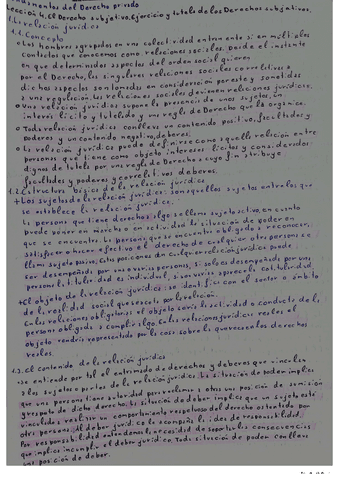 Fundamentos del Derecho privado
Lección 4. El Derecho subjetivo. Ejercicio y tutela de los Derechos subjetivos.
1. La relación jurídica
1.1. Concepto
o Los hombres agrupados en una colectividad entran entre sí en múltiples
contactos que conocemos como relaciones sociales. Desde el instante
en que determinados aspectos del orden social
por el Derecho, las singulares relaciones sociales correlativas a
dichos aspectos son tomadas en consideración por este y sometidas
a una regulación. Las relaciones sociales devienen relaciones jurídicas.
o Una relación jurídica supone la presencia de unos sujetos, un
interés lícito y tutelado y una regla de Derecho que la organiza.
o Toda relación jurídica conlleva un contenido positivo, facultades y
poderes y un contenido negativo, deberes.
o La relación jurídica puede definirse como aquella relación entre
personas que tiene como objeto intereses lícitos y considerados
dignos de tutela por una regla de Derecho cuyo fin atribuye
facultades y poderes y correlativos deberes.
1.2. Estructura básica de la relación jurídica
+ Los sujetos de la relación jurídica: son aquellos sujetos entre los que
se establece la relación jurídica.
La persona que tiene derecho a algo se llama sujeto activo, en cuanto
puede poner en marcha o en actividad la situación de poder en
que se encuentra. La persona que se encuentra obligada a reconocer,
satisfacer o hacer efectivo el derecho de cualquier otra persona se
llama sujeto pasivo. Estas posiciones de cualquier relación jurídica puede
ser desempeñada por una o varias personas, si sólo es desempeñada por una
persona la titularidad es individual, si son varias aparece la cotitularidad.
+ El objeto de la relación jurídica: se identifica con el sector o ámbito
de la realidad social que es acotado por la relación.
En las relaciones obligatorias el objeto será la actividad o conducta de la
persona obligada a cumplir algo. En las relaciones jurídicas reales el
objeto vendría representado por la cosa sobre la que recaen los derechos
reales.
1.3. El contenido de la relación jurídica
o Se entiende por tal el entramado de derechos y deberes que vinculan
a los sujetos o partes de la relación jurídica. La situación de poder implica
que una persona tiene autoridad para reclamar a otra una posición de sumisión
y respeto de dicho derecho. La situación de deber implica que un sujeto está
vinculado a realizar un comportamiento respetuoso del derecho ostentado por
otra persona. Al deber jurídico le acompaña la idea de responsabilidad.
Por responsabilidad entendemos la necesidad de soportar las consecuencias
que implica incumplir el deber jurídico. Toda situación de poder conlleva
una posición de deber.